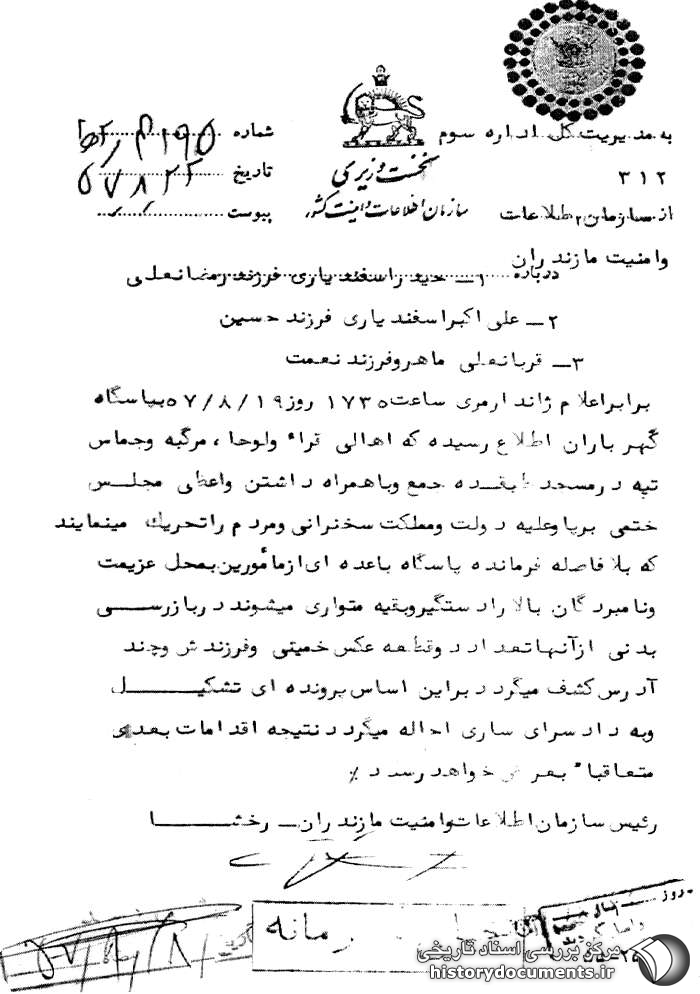 به مدیریت کل اداره سوم
۳۱۲
از سازمان اطلاعات
وامنیت مازندران
نخست وزیری
سازمان اطلاعات و امنیت کشور
شماره
تاریخ ۵۷/۸/۲۲
پیوست
درباره ۱ــ حیدر اسفند یاری فرزند رمضانعلی
۲ــ علی اکبر اسفند یاری فرزند حسین
۳ــ قربانعلی ماهرو فرزند نعمت
برابر اعلام ژاندارمری ساعت ۱۷۳۵ روز ۵۷/۸/۱۹ بپاسگاه
گهر باران اطلاع رسیده که اهالی قراء ولوجا ، مرگبه وجماس
تپه در مسجد طبقده جمع وباهمراه داشتن واعظی مجلس
ختمی برپا وعلیه دولت ومملکت سخنرانی ومردم راتحریك مینمایند
که بلافاصله فرمانده پاسگاه باعده ای ازمأمورین بمحل عزیمت
ونامبردگان بالا رادستگیر وبقیه متواری میشوند دربازرســی
بدنی ازآنها تعداد دوقطعه عکس خمینی وفرزندش وچند
آدرس کشف میگردد براین اساس پرونده ای تشکیــــل
وبه دادسرای ساری احاله میگردد نتیجه اقدامات بعدی
متعاقباً بعرض خواهد رسید ٪
رئیس سازمان اطلاعات وامنیت مازندران ــ رخشــــا
مرکز بررسی اسناد تاریخی
historydocuments.ir